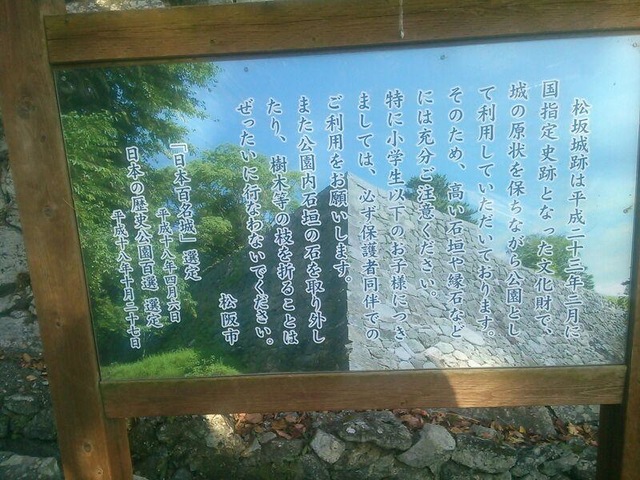 松坂城跡は平成二十三年二月に
国指定史跡となった文化財で、
城の原状を保ちながら公園とし
て利用していただいております。
そのため、高い石垣や縁石など
には充分ご注意ください。
特に小学生以下のお子様につき
ましては、必ず保護者同伴での
ご利用をお願いします。
また公園内石垣の石を取り外し
たり、樹木等の枝を折ることは
ぜったいに行なわないでください。
松阪市
「日本百名城」選定
平成十八年四月六日
日本の歴史公園百選 選定
平成十八年十月二十七日